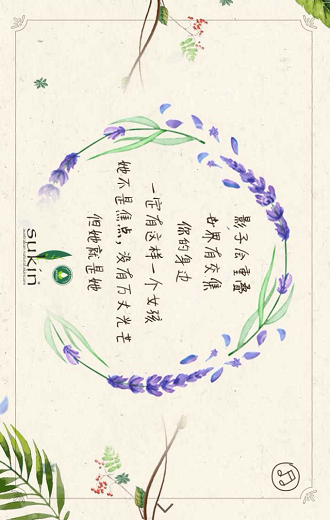 影子会重叠
世界有交集
你的身边
一定有这样一个女孩
她不是焦点，没有万丈光芒
但她就是她
sukin